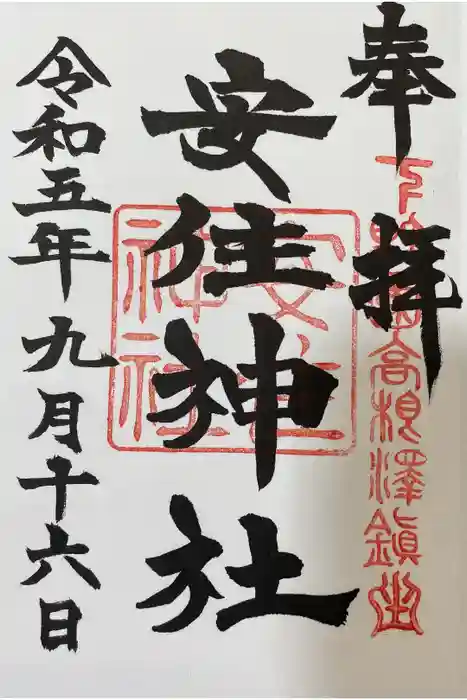 奉拝
下 高根澤鎮坐
安住神社
安住神社
令和五年九月十六日